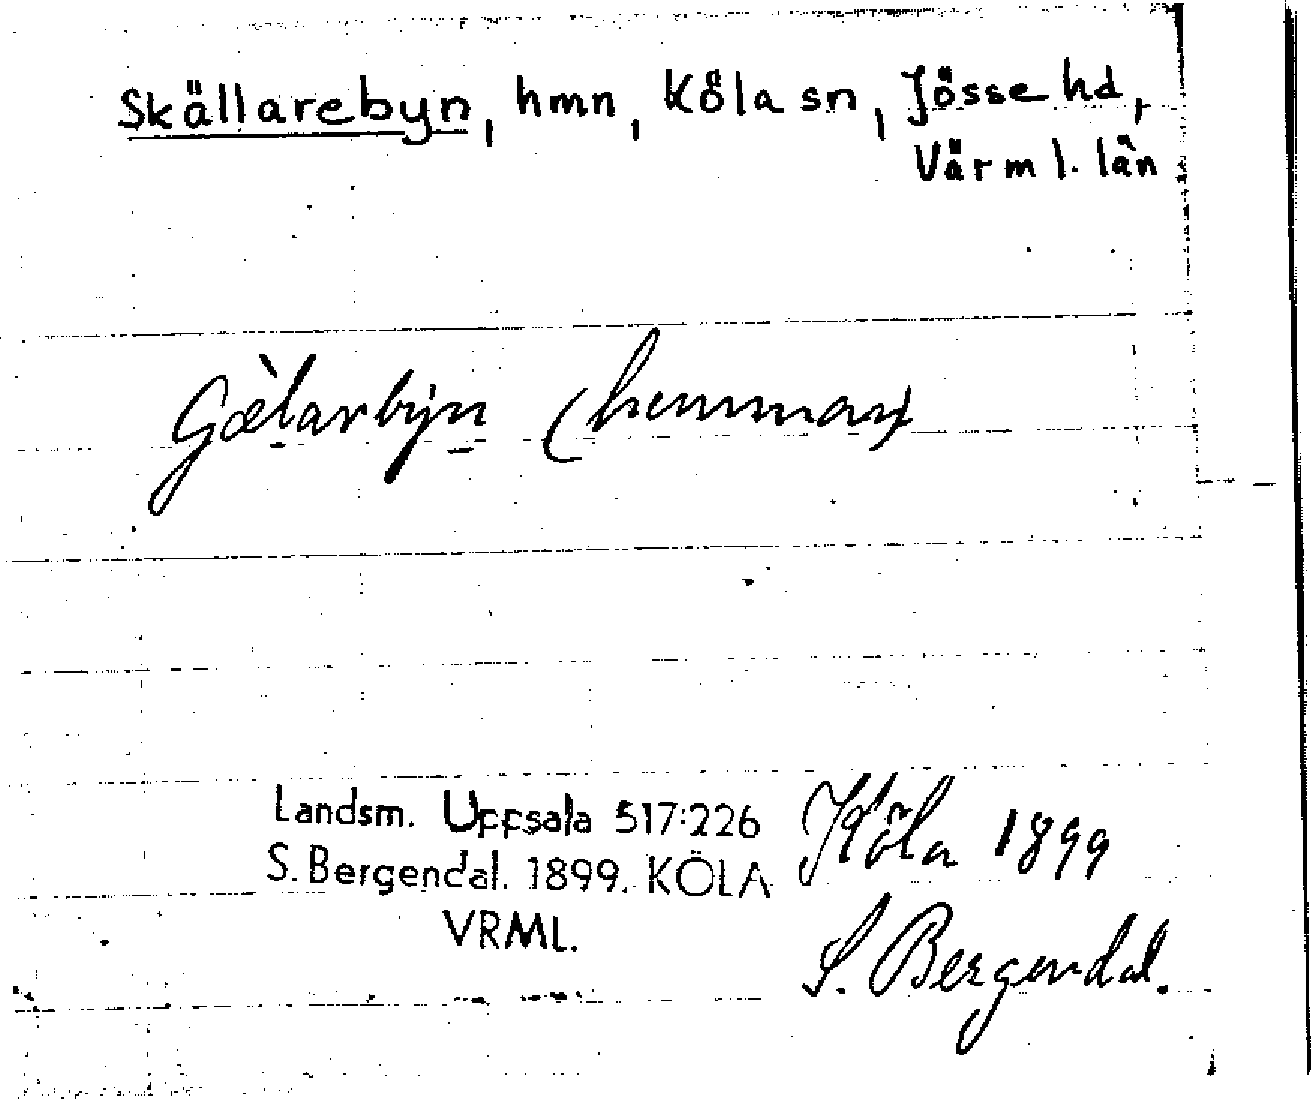 Skällarebyn, hmn, Köla sn, Jösse hd,
Värml. län
Gælarbyn (hemman)
Landsm. Uppsala 517:226
S. Bergendal. 1899. KÖLA
VRML.
Köla 1899
S. Bergendal.